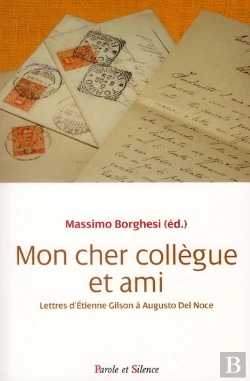 Massimo Borghesi (éd.)
Mon cher collègue
et ami
Lettres d'Étienne Gilson à Augusto Del Noce
Parole et Silence
B